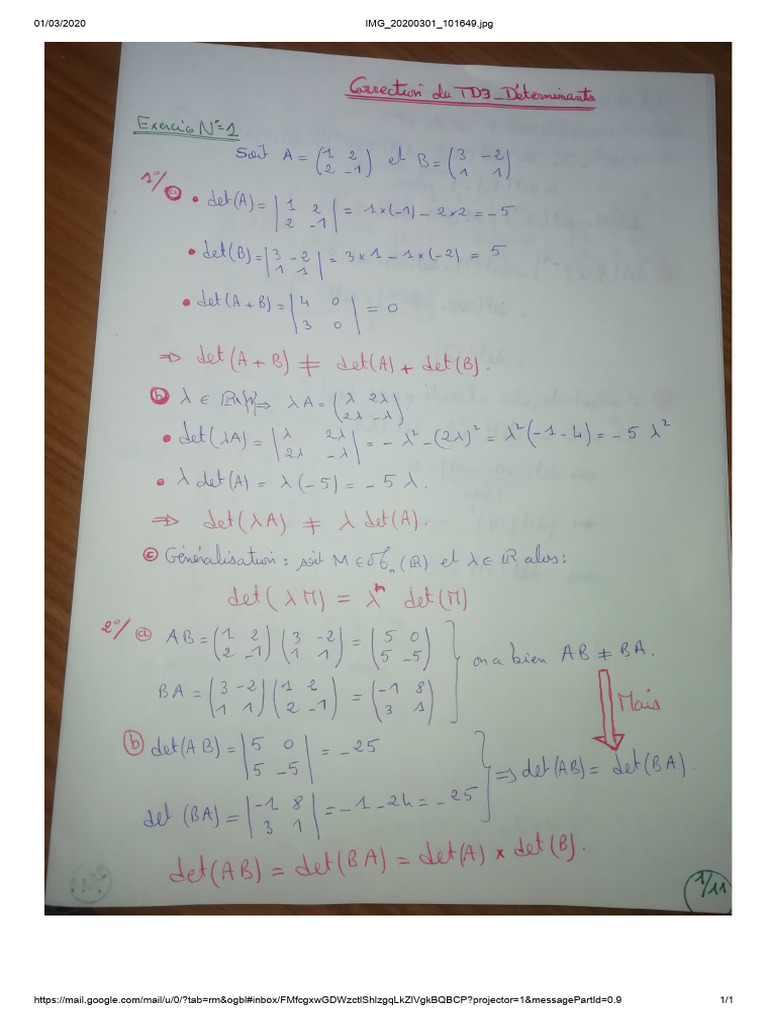 01/03/2020 IMG_20200301_101649.jpg
Correction du TD3_Déterminants
Exercice N°=1
Soit A = (1 2 ; 2 -1) et B = (3 -2 ; 1 1)
1°/ (a) • det(A) = |1 2 ; 2 -1| = 1×(-1) - 2×2 = -5
• det(B) = |3 -2 ; 1 1| = 3×1 - 1×(-2) = 5
• det(A+B) = |4 0 ; 3 0| = 0
⇒ det(A+B) ≠ det(A) + det(B).
(b) λ ∈ ℝ ⇒ λA = (λ 2λ ; 2λ -λ)
• det(λA) = |λ 2λ ; 2λ -λ| = -λ² - (2λ)² = λ²(-1-4) = -5 λ²
• λ det(A) = λ(-5) = -5 λ.
⇒ det(λA) ≠ λ det(A).
(c) Généralisation : soit M ∈ ℳn(ℝ) et λ ∈ ℝ alors :
det(λM) = λⁿ det(M)
2°/ (a) AB = (1 2 ; 2 -1) (3 -2 ; 1 1) = (5 0 ; 5 -5)
BA = (3 -2 ; 1 1) (1 2 ; 2 -1) = (-1 8 ; 3 1)
on a bien AB ≠ BA.
Mais
(b) det(AB) = |5 0 ; 5 -5| = -25
det(BA) = |-1 8 ; 3 1| = -1 - 24 = -25
⇒ det(AB) = det(BA).
det(AB) = det(BA) = det(A) × det(B).
1/11
https://mail.google.com/mail/u/0/?tab=rm&ogbl#inbox/FMfcgxwGDWzctlShlzgqLkZlVgkBQBCP?projector=1&messagePartId=0.9 1/1